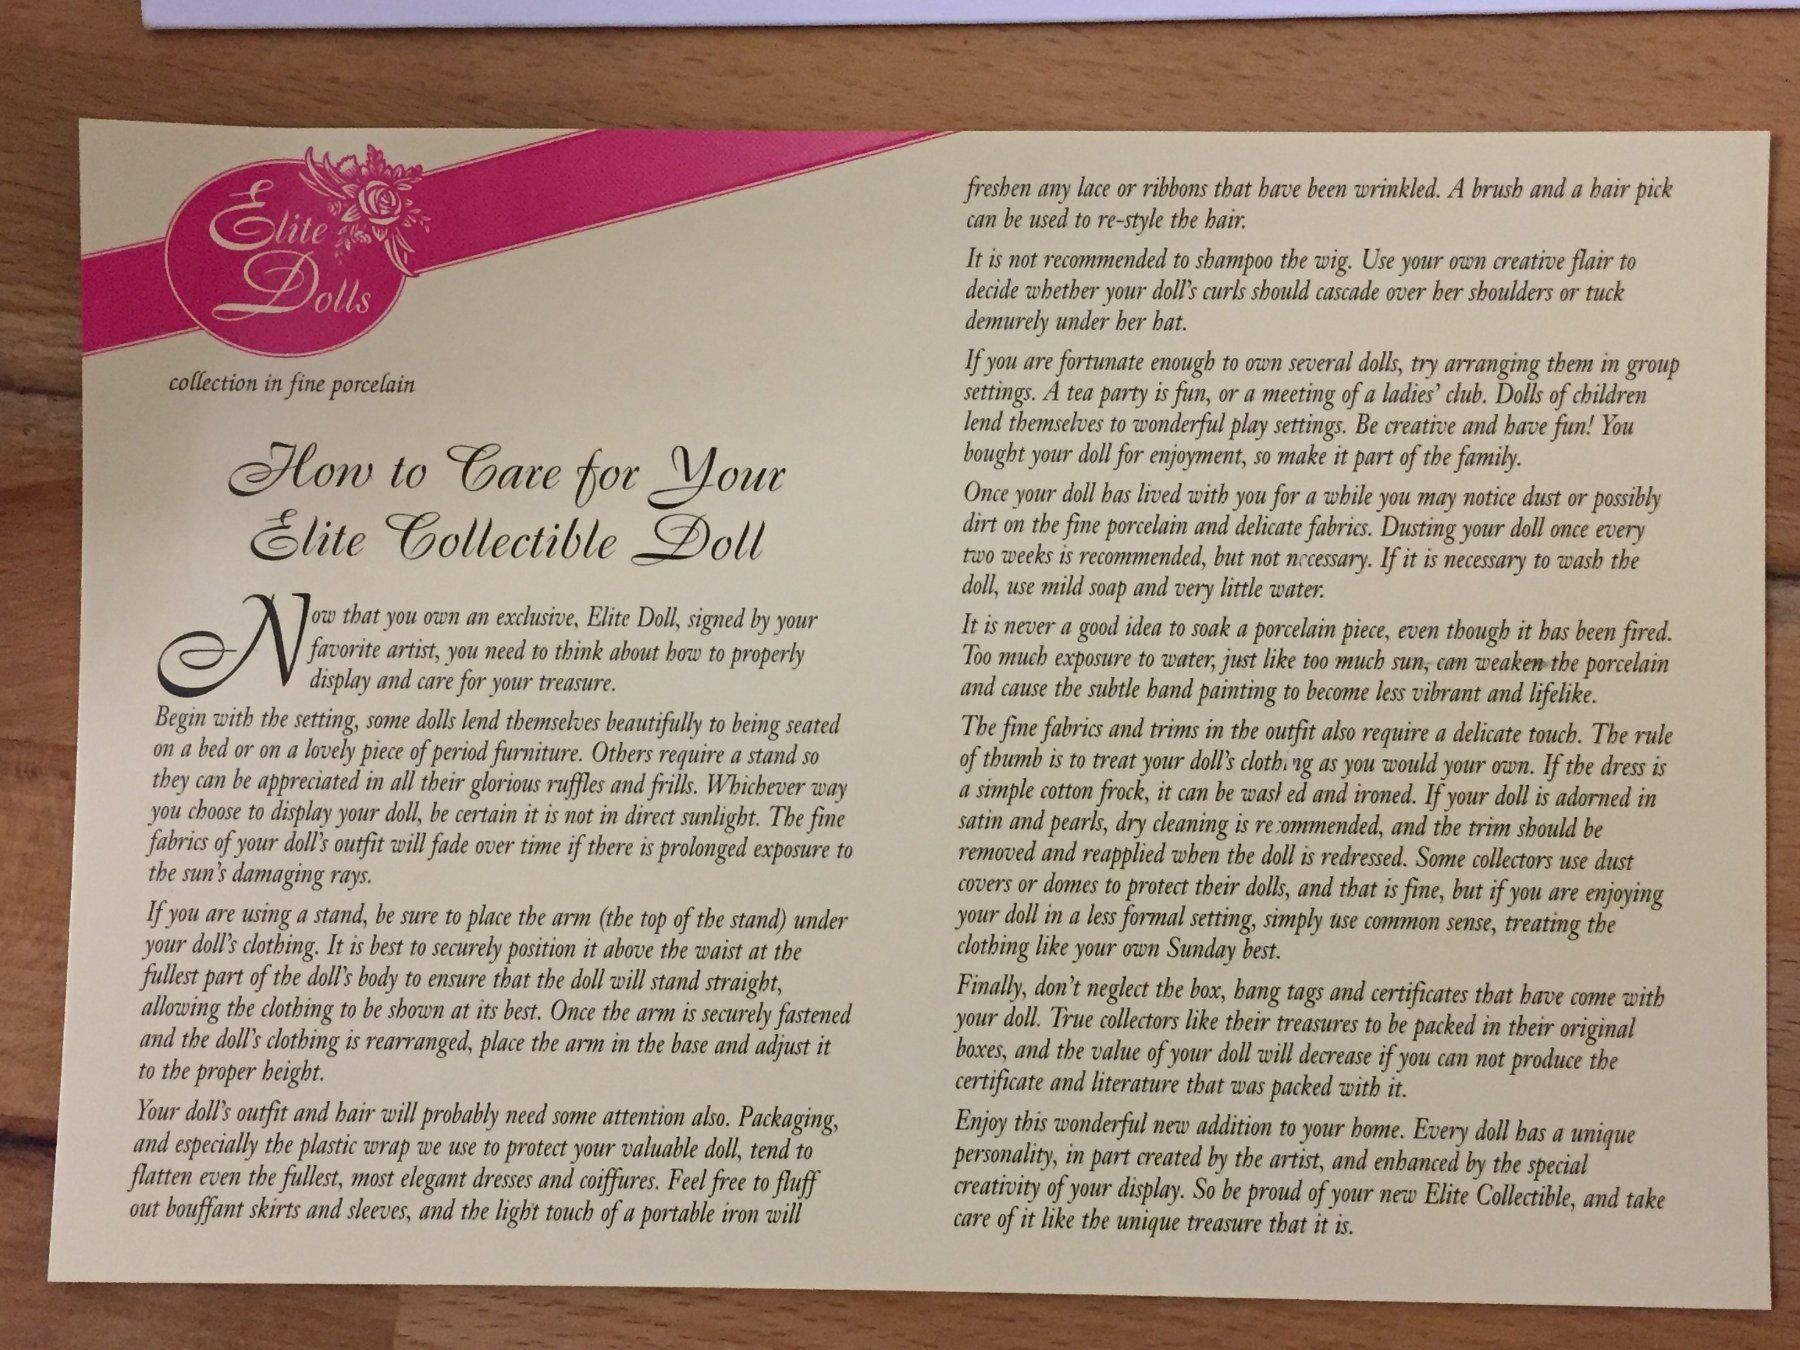 Elite
Dolls
collection in fine porcelain
How to Care for Your
Elite Collectible Doll
Now that you own an exclusive, Elite Doll, signed by your
favorite artist, you need to think about how to properly
display and care for your treasure.
Begin with the setting, some dolls lend themselves beautifully to being seated
on a bed or on a lovely piece of period furniture. Others require a stand so
they can be appreciated in all their glorious ruffles and frills. Whichever way
you choose to display your doll, be certain it is not in direct sunlight. The fine
fabrics of your doll's outfit will fade over time if there is prolonged exposure to
the sun's damaging rays.
If you are using a stand, be sure to place the arm (the top of the stand) under
your doll's clothing. It is best to securely position it above the waist at the
fullest part of the doll's body to ensure that the doll will stand straight,
allowing the clothing to be shown at its best. Once the arm is securely fastened
and the doll's clothing is rearranged, place the arm in the base and adjust it
to the proper height.
Your doll's outfit and hair will probably need some attention also. Packaging,
and especially the plastic wrap we use to protect your valuable doll, tend to
flatten even the fullest, most elegant dresses and coiffures. Feel free to fluff
out bouffant skirts and sleeves, and the light touch of a portable iron will
freshen any lace or ribbons that have been wrinkled. A brush and a hair pick
can be used to re-style the hair.
It is not recommended to shampoo the wig. Use your own creative flair to
decide whether your doll's curls should cascade over her shoulders or tuck
demurely under her hat.
If you are fortunate enough to own several dolls, try arranging them in group
settings. A tea party is fun, or a meeting of a ladies' club. Dolls of children
lend themselves to wonderful play settings. Be creative and have fun! You
bought your doll for enjoyment, so make it part of the family.
Once your doll has lived with you for a while you may notice dust or possibly
dirt on the fine porcelain and delicate fabrics. Dusting your doll once every
two weeks is recommended, but not necessary. If it is necessary to wash the
doll, use mild soap and very little water.
It is never a good idea to soak a porcelain piece, even though it has been fired.
Too much exposure to water, just like too much sun, can weaken the porcelain
and cause the subtle hand painting to become less vibrant and lifelike.
The fine fabrics and trims in the outfit also require a delicate touch. The rule
of thumb is to treat your doll's clothing as you would your own. If the dress is
a simple cotton frock, it can be washed and ironed. If your doll is adorned in
satin and pearls, dry cleaning is recommended, and the trim should be
removed and reapplied when the doll is redressed. Some collectors use dust
covers or domes to protect their dolls, and that is fine, but if you are enjoying
your doll in a less formal setting, simply use common sense, treating the
clothing like your own Sunday best.
Finally, don't neglect the box, hang tags and certificates that have come with
your doll. True collectors like their treasures to be packed in their original
boxes, and the value of your doll will decrease if you can not produce the
certificate and literature that was packed with it.
Enjoy this wonderful new addition to your home. Every doll has a unique
personality, in part created by the artist, and enhanced by the special
creativity of your display. So be proud of your new Elite Collectible, and take
care of it like the unique treasure that it is.